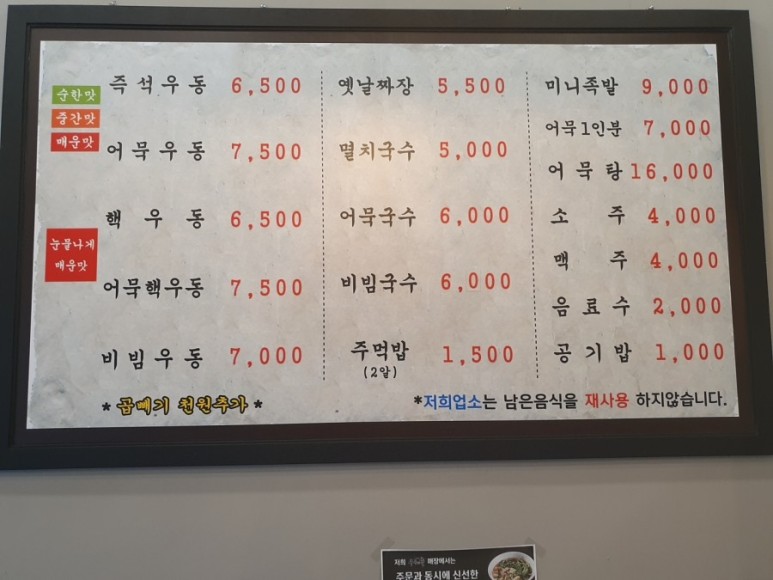 순한맛
중간맛
매운맛
즉석우동 6,500
어묵우동 7,500
눈물나게
매운맛
핵우동 6,500
어묵핵우동 7,500
비빔우동 7,000
* 곱빼기 천원추가 *
옛날짜장 5,500
멸치국수 5,000
어묵국수 6,000
비빔국수 6,000
주먹밥 1,500
(2알)
미니족발 9,000
어묵1인분 7,000
어묵탕 16,000
소주 4,000
맥주 4,000
음료수 2,000
공기밥 1,000
*저희업소는 남은음식을 재사용 하지않습니다.
저희 매장에서는
주문과 동시에 신선한